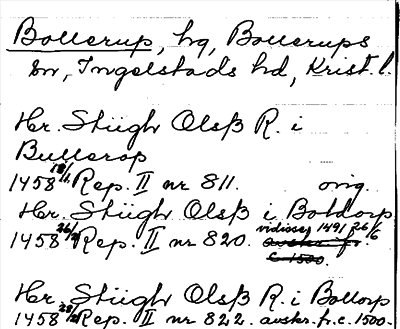 Bollerup, hg, Bollerups
sn, Ingelstads hd, Krist. l.
Hr. Stiigh Olsß R. i
Bullerop
1458 18/1. Rep. II nr 811. orig.
Hr. Stiigh Olsß i Boldorp
1458 26/2 Rep. II nr 820. vidisse, 1491 26/6
avskr. fr.
c. 1500.
Hr Stiigh Olsß R. i Bollorp
1458 29/2 Rep. II nr 822. avskr. fr. c. 1500.